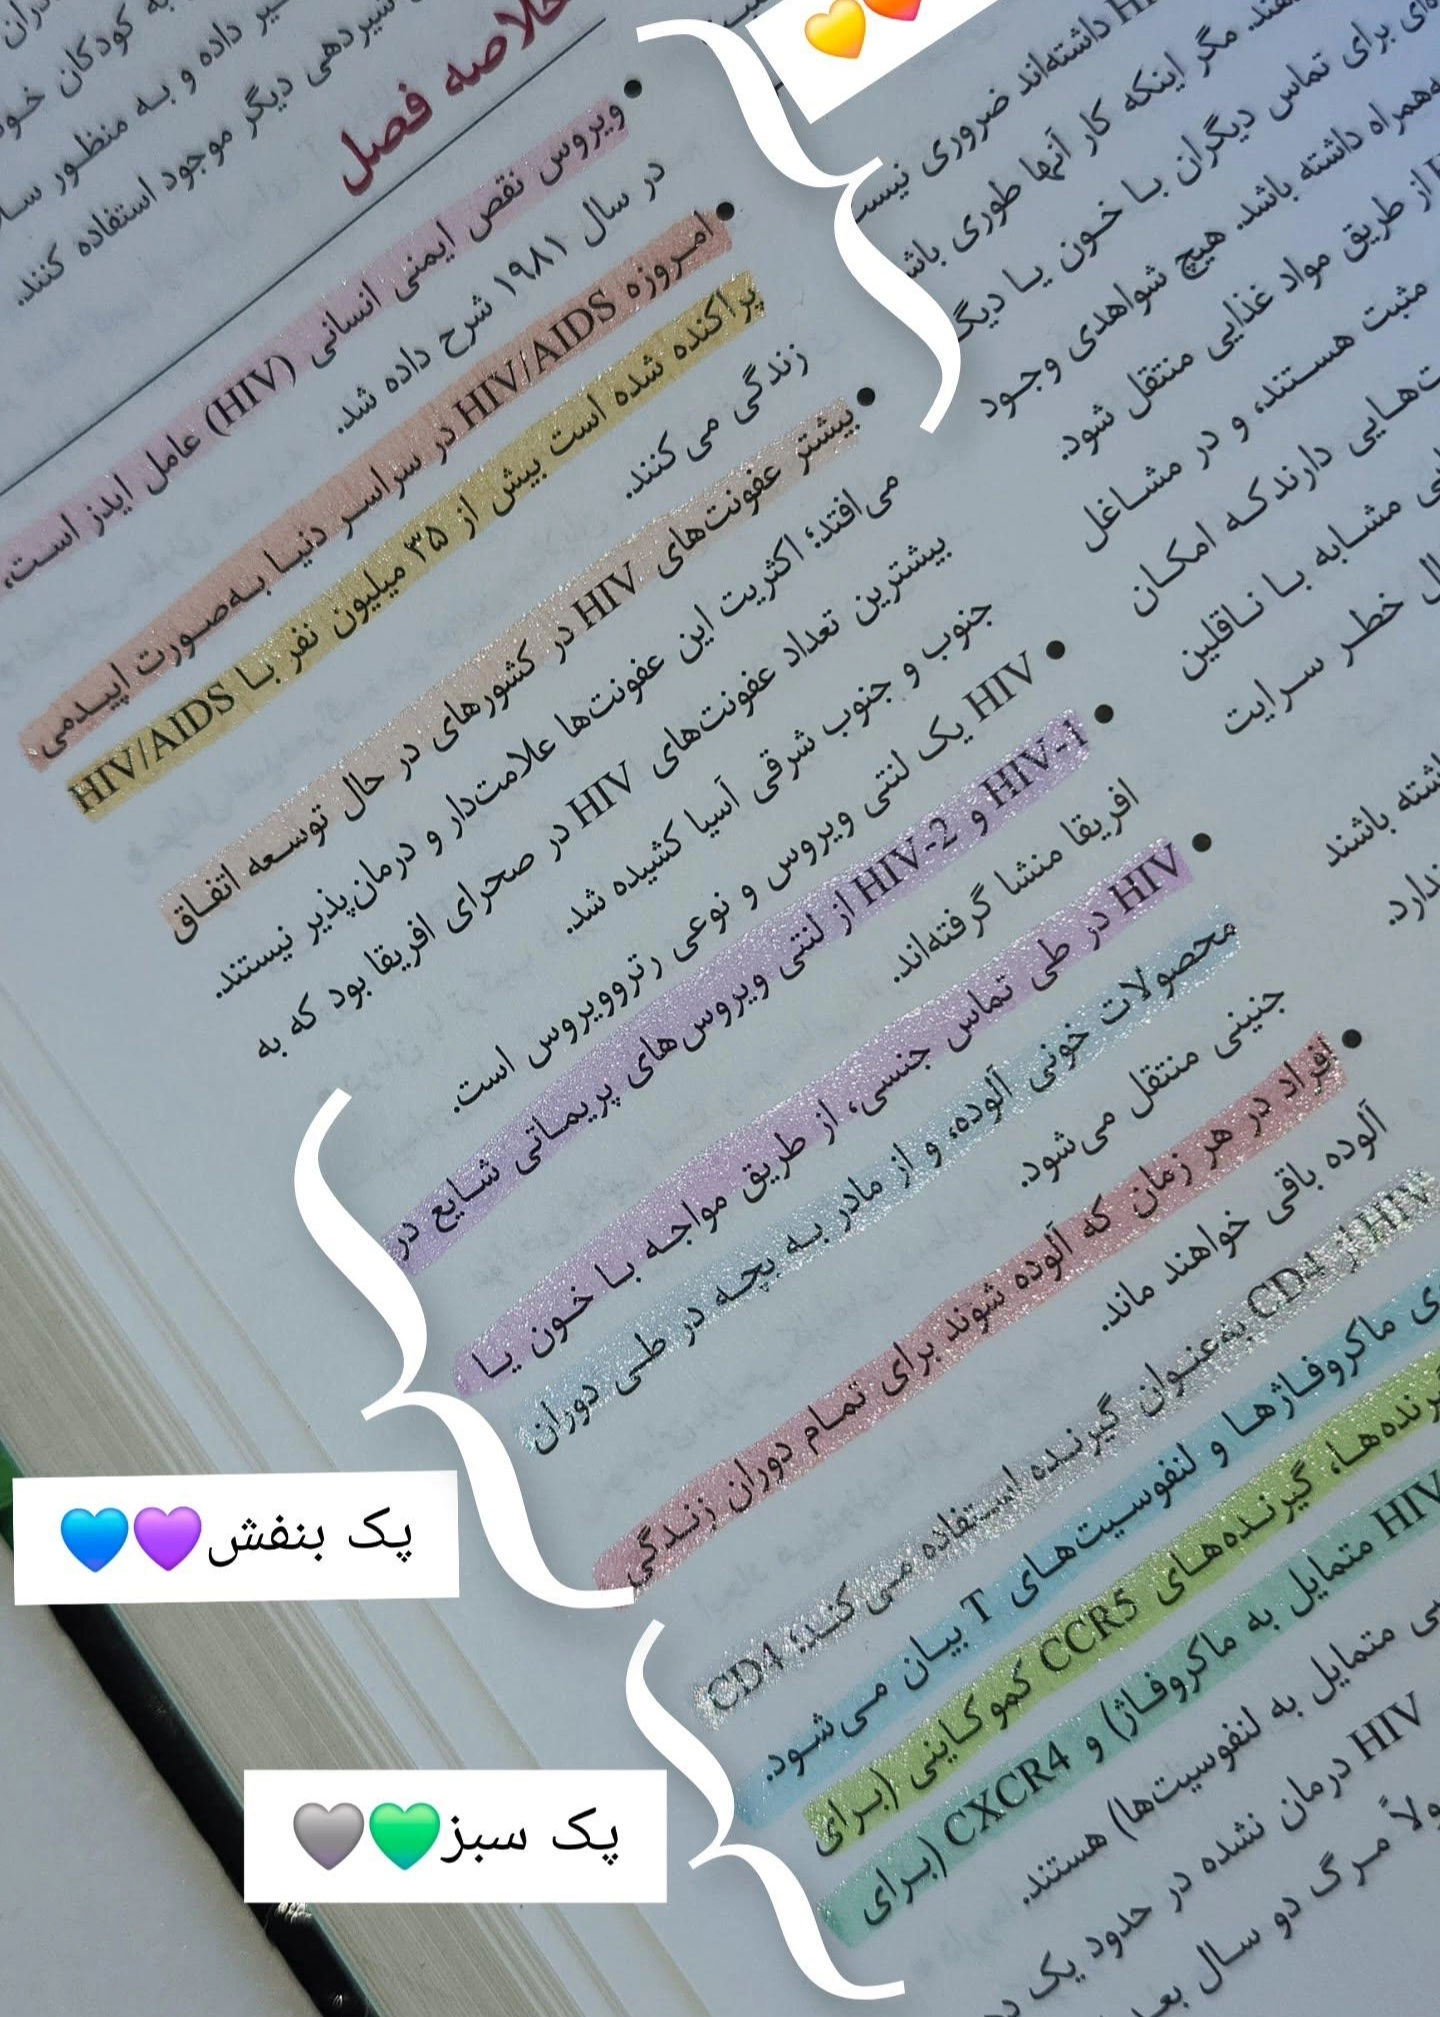 به کودکان
داده و به منظور
شیردهی دیگر موجود استفاده کنند.
خلاصه فصل
ویروس نقص ایمنی انسانی (HIV) عامل ایدز است،
در سال ۱۹۸۱ شرح داده شد.
امروزه HIV/AIDS در سراسر دنیا به‌صورت اپیدمی
پراکنده شده است بیش از ۳۵ میلیون نفر با HIV/AIDS
زندگی می‌کنند.
بیشتر عفونت‌های HIV در کشورهای در حال توسعه اتفاق
می‌افتد؛ اکثریت این عفونت‌ها علامت‌دار و درمان‌پذیر نیستند.
بیشترین تعداد عفونت‌های HIV در صحرای افریقا بود که به
جنوب و جنوب شرقی آسیا کشیده شد.
HIV یک لنتی ویروس و نوعی رتروویروس است.
HIV-1 و HIV-2 از لنتی ویروس‌های پریماتی شایع در
افریقا منشا گرفته‌اند.
HIV در طی تماس جنسی، از طریق مواجه با خون یا
محصولات خونی آلوده، و از مادر به بچه در طی دوران
جنینی منتقل می‌شود.
افراد در هر زمان که آلوده شوند برای تمام دوران زندگی
آلوده باقی خواهند ماند.
HIV از CD4 به‌عنوان گیرنده استفاده می‌کند؛ CD4
ماکروفاژها و لنفوسیت‌های T بیان می‌شود.
گیرنده‌های CCR5 کموکاینی (برای
HIV متمایل به ماکروفاژ) و CXCR4 (برای
متمایل به لنفوسیت‌ها) هستند.
HIV درمان نشده در حدود یک
مرگ دو سال بعد
داشته‌اند ضروری نیست
مگر اینکه کار آنها طوری
برای تماس دیگران با خون یا
همراه داشته باشد. هیچ شواهدی وجود
از طریق مواد غذایی منتقل شود.
مثبت هستند، و در مشاغل
دارندکه امکان
مشابه با ناقلین
خطر سرایت
باشند
ندارد.
پک بنفش💜💙
پک سبز💚🩶